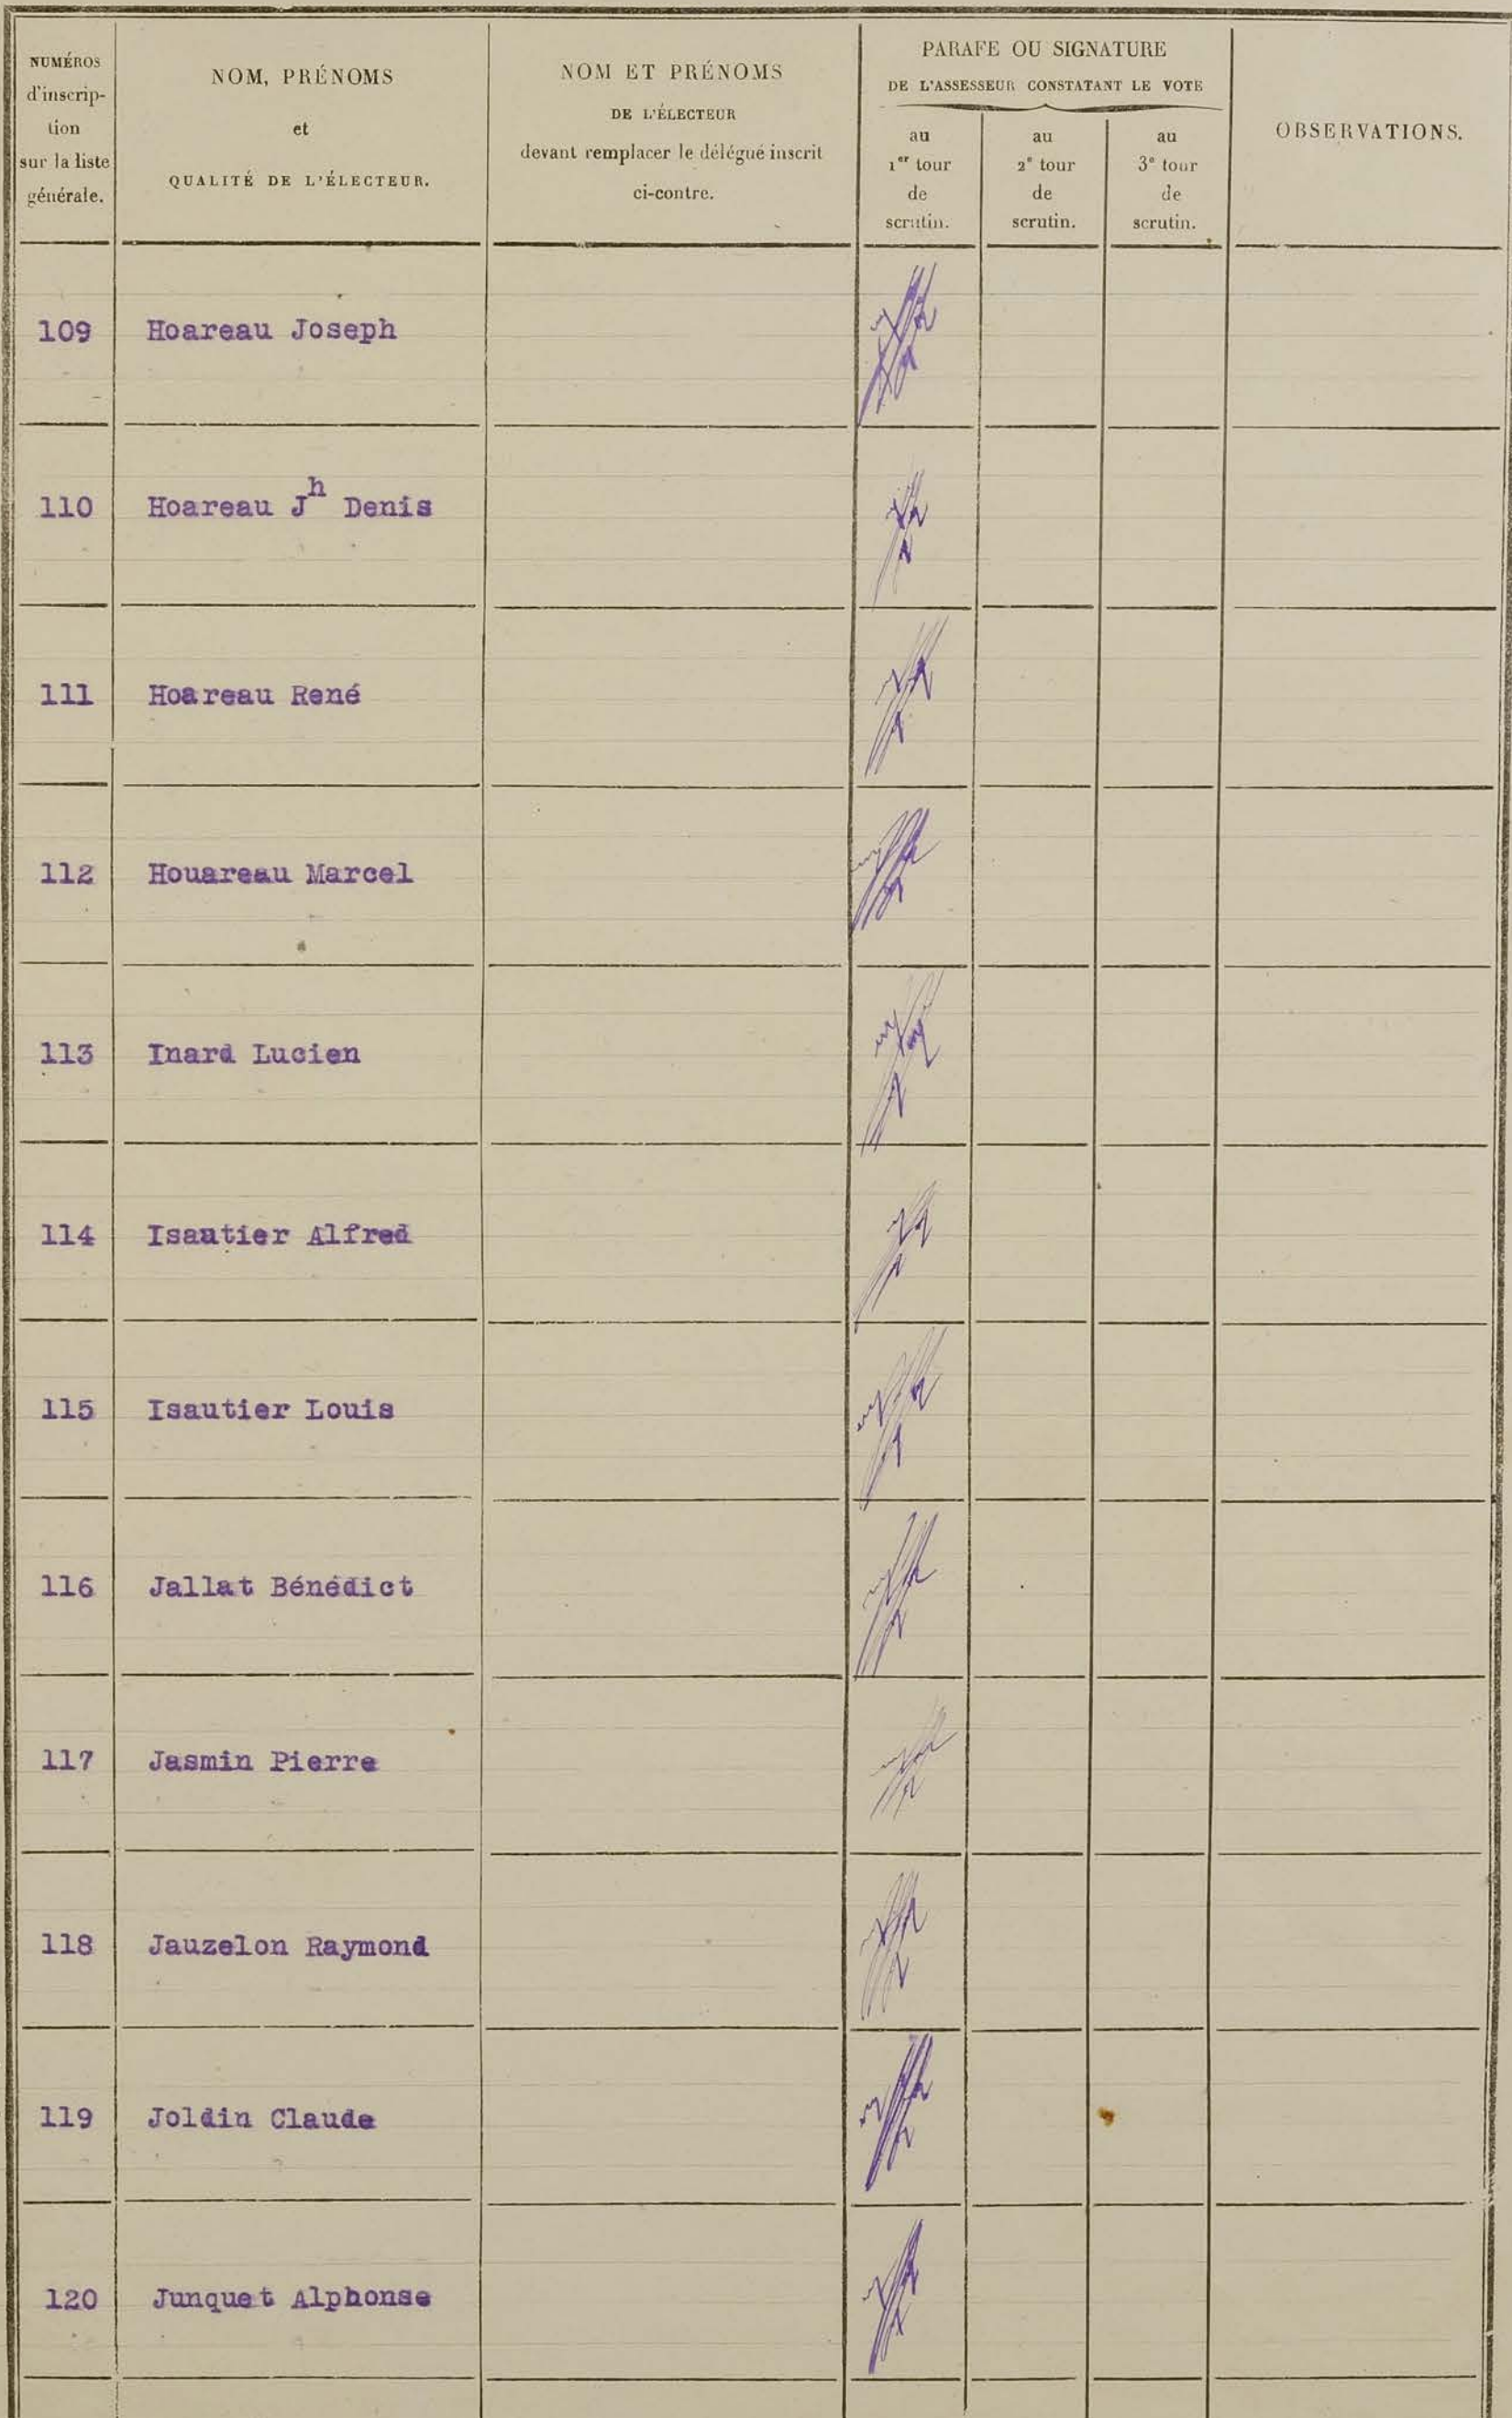 NUMÉROS
d'inscrip-
tion
sur la liste
générale.
NOM, PRÉNOMS
et
QUALITÉ DE L'ÉLECTEUR.
NOM ET PRÉNOMS
DE L'ÉLECTEUR
devant remplacer le délégué inscrit
ci-contre.
PARAFE OU SIGNATURE
DE L'ASSESSEUR CONSTATANT LE VOTE
au
1er tour
de
scrutin.
au
2e tour
de
scrutin.
au
3e tour
de
scrutin.
OBSERVATIONS.
109 Hoareau Joseph
110 Hoareau Jh Denis
111 Hoareau René
112 Houareau Marcel
113 Inard Lucien
114 Isautier Alfred
115 Isautier Louis
116 Jallat Bénédict
117 Jasmin Pierre
118 Jauzelon Raymond
119 Joldin Claude
120 Junquet Alphonse